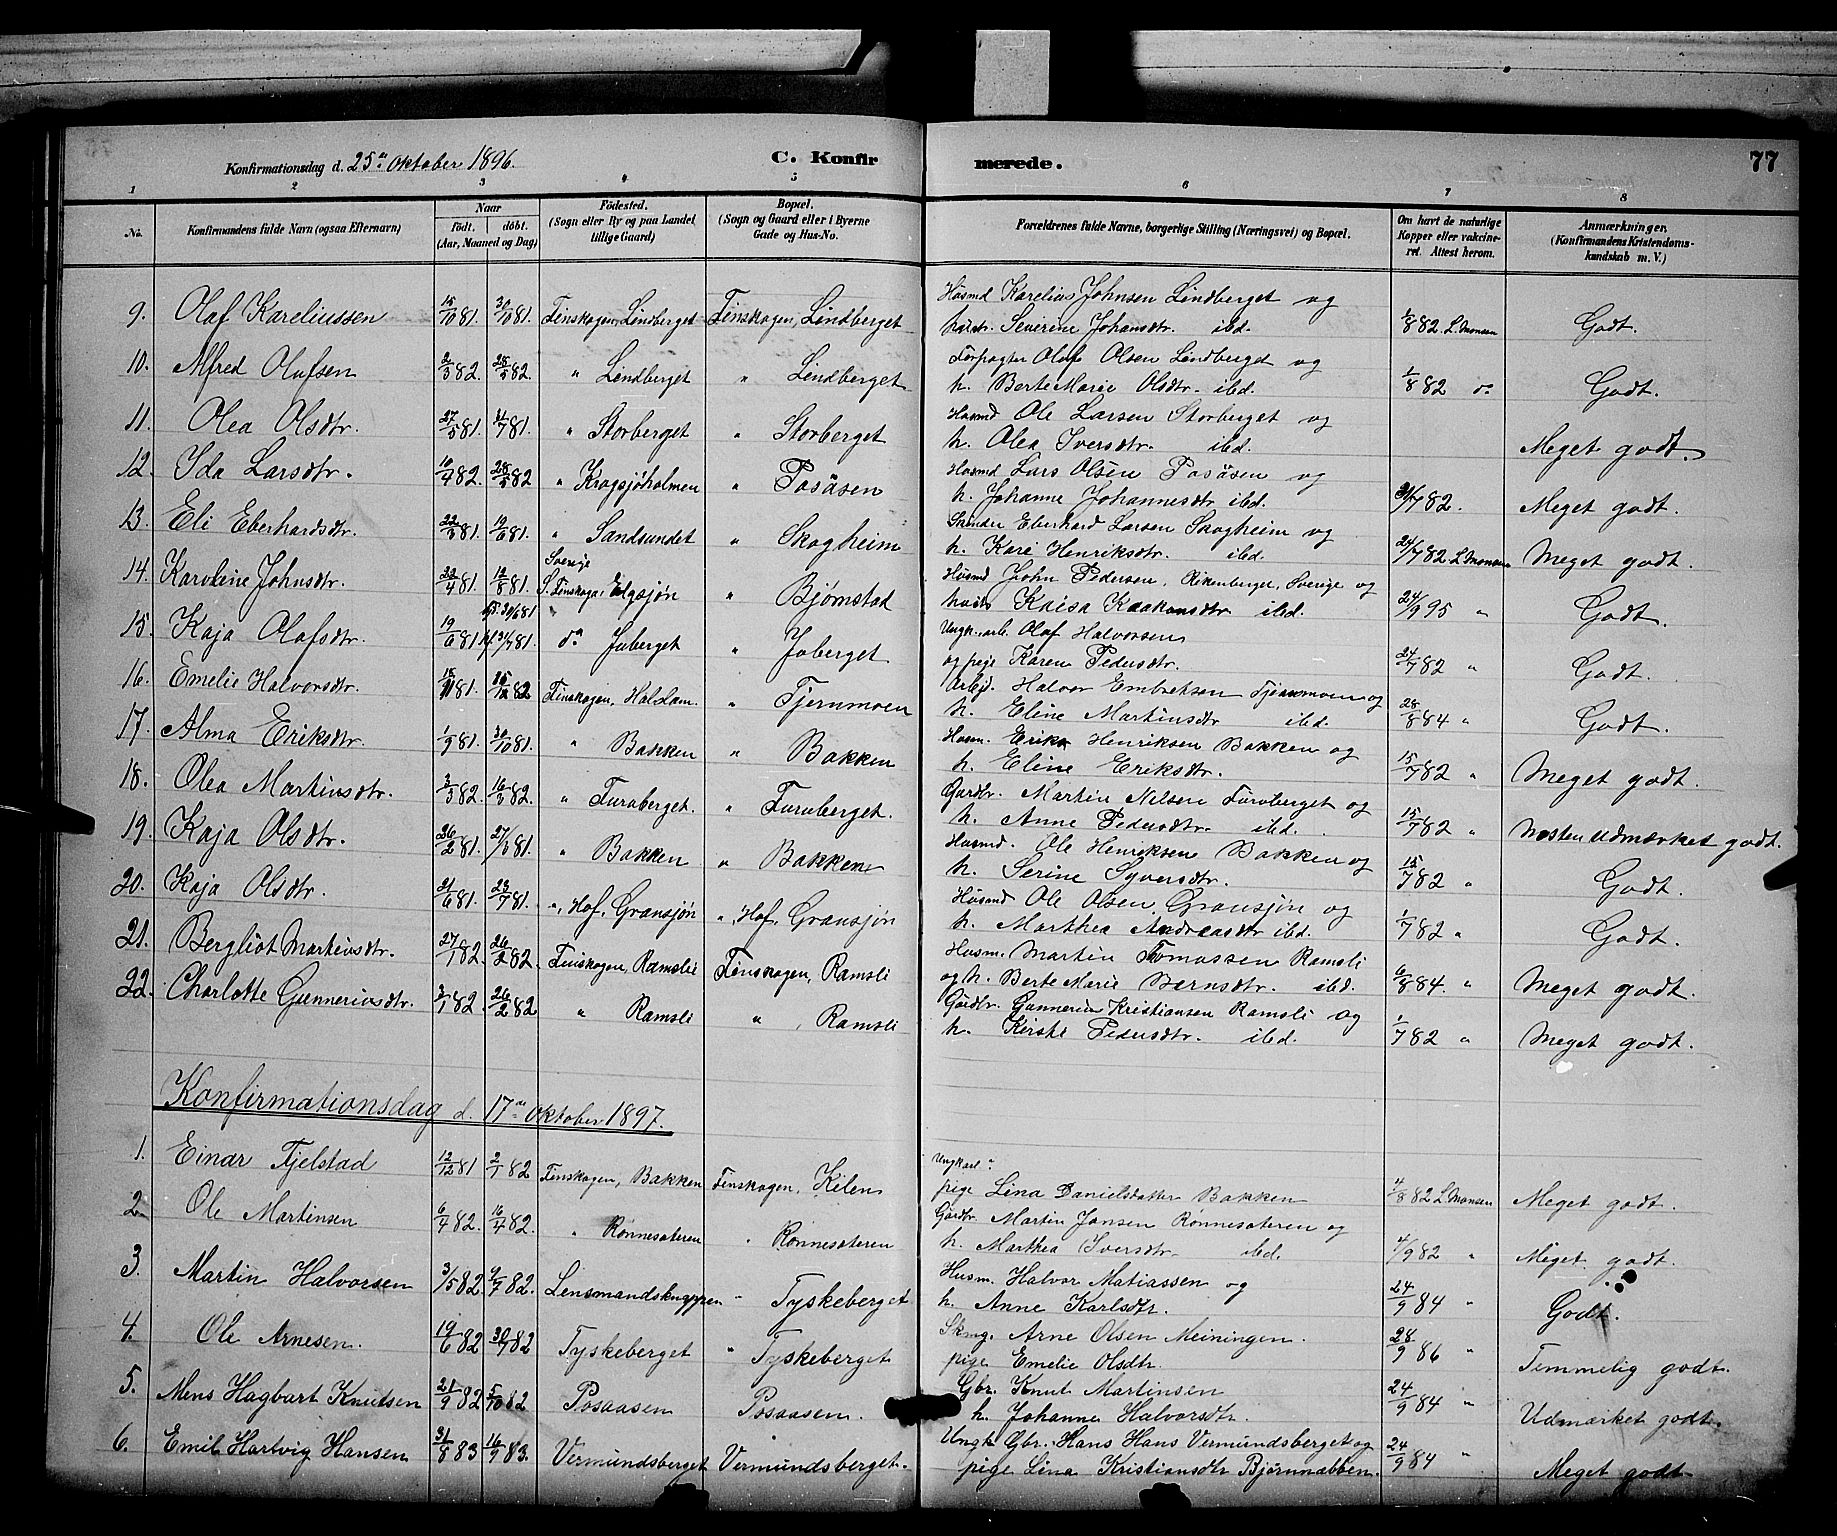 Konfirmationsdag d. 25de Oktober 1896.
C. Konfirmerede.
77
1 2 3 4 5 6 7 8
No. Konfirmandens fulde Navn (ogsaa Efternavn) Naar født. døbt. (Aar, Maaned og Dag) Fødested. (Sogn eller By og paa Landet tillige Gaard) Bopæl. (Sogn og Gaard eller i Byerne Gade og Hus-No. Forældrenes fulde Navne, borgerlige Stilling (Næringsvei) og Bopæl. Om havt de naturlige Kopper eller vakcineret. Attest herom. Anmærkninger. (Konfirmandens Kristendomskundskab m. V.)
9. Olaf Kareliussen 15/10 81. 30/10 81. Finskogen, Lindberget Finskogen, Lindberget Husmd Karelius Johnsen Lindberget og
hustr. Severine Johansdtr. ibd. 1/8 82 L. Monsen Godt.
10. Alfred Olufsen 2/3 82. 28/5 82. " Lindberget " Lindberget Forpagter Olaf Olsen Lindberget og
h. Berte Marie Olsdtr. ibd. 1/8 82 do Godt.
11. Olea Olsdtr. 27/5 81. /7 81. " Storberget " Storberget Husmd Ole Larsen Storberget og
h. Olea Iversdtr. ibd. Meget godt.
12. Ida Larsdtr. 10/4 82. 28/5 82 " Krogsjøholmen " Posåsen Husmd Lars Olsen Posåsen og
h. Johanne Johannesdtr ibd. /7 82. Meget godt.
13. Eli Eberhardsdtr. 22/3 81. /6 81. " Sandsundet " Skogheim Eberhard Larsen Skogheim og
h. Kari Henriksdtr. ibd. 24/7 82 L. Monsen Meget godt.
14. Karoline Johnsdtr. 22/4 81. /8 81. Sverige S. Finskoga, Elgsjøn " Bjørnstad Husmd John Pedersen, Rikenberget, Sverige og
hustr Kaisa ibd. 24/9 95 " Godt.
15. Kaja Olafsdtr. 19/6 81 31/7 81. do Juberget " Juberget Ungk. arb. Olaf Halvorsen
og pige Karen Pedersdtr. 24/7 82 " Godt.
16. Emelie Halvorsdtr. /11 81. 82 Finskogen, Halslam. " Tjernmoen Arbejd. Halvor Embretsen Tjernmoen og
h. Eline Martinsdtr ibd. 28/8 84 " Godt.
17. Alma Eriksdtr. 1/9 81. 30/10 81. " Bakken " Bakken Husm. Erik Henriksen Bakken og
h. Eline Eriksdtr. 15/7 82 " Meget godt.
18. Olea Martinsdtr. 2/3 82. 16/3 82. " Furuberget. " Furuberget. Gårdbr. Martin Nilsen Furuberget og
h. Anne Pedersdtr. ibd. 15/7 82 " Næsten udmærket godt.
19. Kaja Olsdtr. 26/2 81. 27/ 81. " Bakken " Bakken Husmd. Ole Henriksen Bakken og
h. Serine Syversdtr. 15/7 82 " Godt.
20. Kaja Olsdtr. 21/6 81. 23/7 81. ", Hof, Gransjøn ", Hof, Gransjøn Husmd Ole Olsen Gransjøn og
h. Marthea Andreasdtr ibd. 1/7 82 " Godt.
21. Bergliot Martinsdtr. 27/1 82. 26/2 82. Finskogen, Ramsli Finskogen, Ramsli Husm. Martin Tomassen Ramsli
og h. Berte Marie Bærnsdtr. ibd. 6/8 84. " Meget godt.
22. Charlotte Gunneriusdtr. 3/1 82. 26/2 82 " Ramsli " , Ramsli Gårdbr. Gunnerius Kristiansen Ramsli og
h. Kirsti Pedersdtr. ibd. 1/7 82 " Meget godt.
Konfirmationsdag d. 17de Oktober 1897.
1. Einar Fjelstad 12/12 81 2/1 82 Finskogen, Bakken Finskogen, Kilen Ungkarl "
pige Lina Danielsdatter Bakken 4/8 82 L. Monsen Meget godt.
2. Ole Martinsen 6/4 82. 16/4 82. " Rønnesæteren " Rønnesæteren Gårdbr. Martin Jansen Rønnesæteren og
h. Marthea Iversdtr. ibd. 4/9 82 " Meget godt.
3. Martin Halvorsen 3/5 82 9/7 82. Lensmandsknappen " Tyskeberget Husm. Halvor Matiassen og
h. Anne Karlsdtr. 24/9 84 " Godt.
4. Ole Arnesen. 19/6 82 30/7 82 Tyskeberget " Tyskeberget Arne Olsen Meiningen.
pige Emelie Olsdtr. 28/9 86 " Temmelig godt.
5. Mens Hagbart Knutsen 21/9 82 5/10 82 Posaasen Posaasen. Gbr. Knut Martinsen
h. Johanne Halvorsdtr. 24/9 84 " Udmærket godt.
6. Emil Hartvig Hansen 31/8 83 16/9 83. Vermundsberget Vermundsberget. Ungk. Gbr. Hans Hans Vermundsberget og
pige Lina Kristiansdtr Bjørnnabben. 24/9 84 " Meget godt